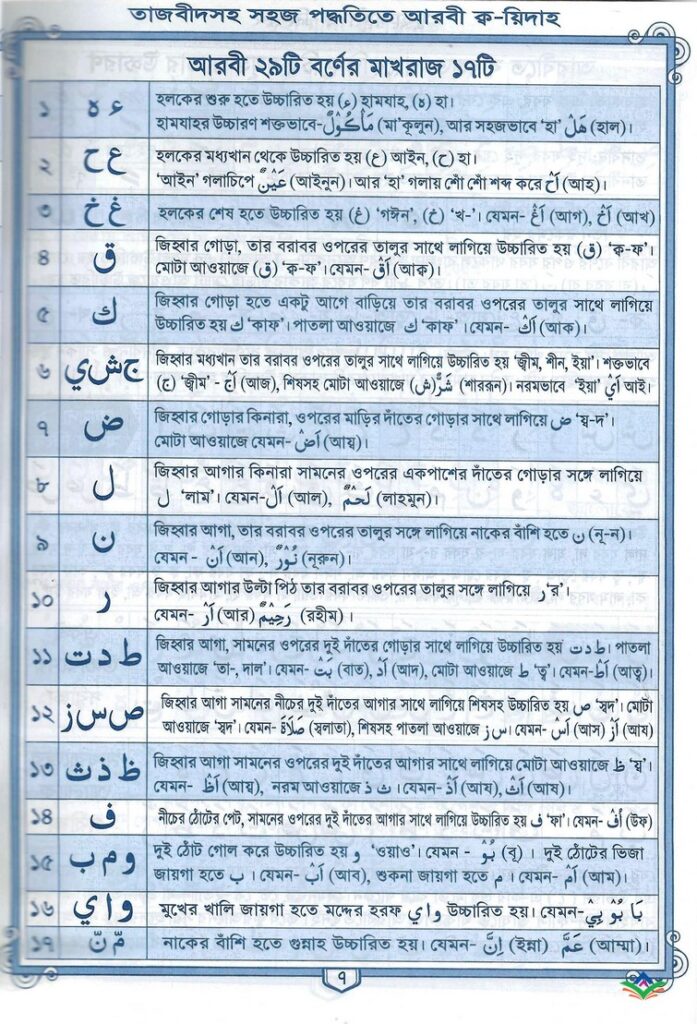 তাজবীদসহ সহজ পদ্ধতিতে আরবী ক্ব-য়িদাহ
আরবী ২৯টি বর্ণের মাখরাজ ১৭টি
১ ء ه হলকের শুরু হতে উচ্চারিত হয় (ء) হামযাহ, (ه) হা।
হামযাহর উচ্চারণ শক্তভাবে- مَأْكُوْلٌ (মা'কূলুন), আর সহজভাবে 'হা' هَلْ (হাল)।
২ ع ح হলকের মধ্যখান থেকে উচ্চারিত হয় (ع) আইন, (ح) হা।
'আইন' গলাচিপে عَيْنٌ (আইনুন)। আর 'হা' গলায় শোঁ শোঁ শব্দ করে اَحْ (আহ)।
৩ غ خ হলকের শেষ হতে উচ্চারিত হয় (غ) 'গঈন', (خ) 'খ-'। যেমন- اَغْ (আগ), اَخْ (আখ)
৪ ق জিহ্বার গোড়া, তার বরাবর ওপরের তালুর সাথে লাগিয়ে উচ্চারিত হয় (ق) 'ক্ব-ফ'।
মোটা আওয়াজে (ق) 'ক্ব-ফ'। যেমন- اَقْ (আক্ব)।
৫ ك জিহ্বার গোড়া হতে একটু আগে বাড়িয়ে তার বরাবর ওপরের তালুর সাথে লাগিয়ে
উচ্চারিত হয় ك 'কাফ'। পাতলা আওয়াজে ك 'কাফ'। যেমন- اَكْ (আক)।
৬ ج ش ي জিহ্বার মধ্যখান তার বরাবর ওপরের তালুর সাথে লাগিয়ে উচ্চারিত হয় 'জ্বীম, শীন, ইয়া'। শক্তভাবে
(ج) 'জ্বীম' - اَجْ (আজ), শিষসহ মোটা আওয়াজে (ش) شَرٌّ (শাররুন)। নরমভাবে 'ইয়া' اَيْ আই।
৭ ض জিহ্বার গোড়ার কিনারা, ওপরের মাড়ির দাঁতের গোড়ার সাথে লাগিয়ে ض 'য্ব-দ'।
মোটা আওয়াজে যেমন- اَضْ (আয্ব)।
৮ ل জিহ্বার আগার কিনারা সামনের ওপরের একপাশের দাঁতের গোড়ার সঙ্গে লাগিয়ে
ل 'লাম'। যেমন- اَلْ (আল), لَحْمٌ (লাহমুন)।
৯ ن জিহ্বার আগা, তার বরাবর ওপরের তালুর সঙ্গে লাগিয়ে নাকের বাঁশি হতে ن (নূ-ন)।
যেমন - اَنْ (আন), نُوْرٌ (নূরুন)।
১০ ر জিহ্বার আগার উল্টা পিঠ তার বরাবর ওপরের তালুর সঙ্গে লাগিয়ে ر 'র'।
যেমন- اَرْ (আর) رَحِيْمٌ (রহীম)।
১১ ط د ت জিহ্বার আগা, সামনের ওপরের দুই দাঁতের গোড়ার সাথে লাগিয়ে উচ্চারিত হয় ط د ت। পাতলা
আওয়াজে 'তা-, দাল'। যেমন- بَتْ (বাত), اَدْ (আদ), মোটা আওয়াজে ط 'ত্ব'। যেমন- اَطْ (আত্ব)।
১২ ص س ز জিহ্বার আগা সামনের নীচের দুই দাঁতের আগার সাথে লাগিয়ে শিষসহ উচ্চারিত হয় ص 'স্বদ'। মোটা
আওয়াজে 'স্বদ'। যেমন- صَلَاةٌ (স্বলাতা), শিষসহ পাতলা আওয়াজে س ز। যেমন- اَسْ (আস) اَزْ (আয)
১৩ ظ ذ ث জিহ্বার আগা সামনের ওপরের দুই দাঁতের আগার সাথে লাগিয়ে মোটা আওয়াজে ظ 'য্ব'।
যেমন- اَظْ (আয্ব), নরম আওয়াজে ذ ث। যেমন- اَذْ (আয), اَثْ (আষ)।
১৪ ف নীচের ঠোঁটের পেট, সামনের ওপরের দুই দাঁতের আগার সাথে লাগিয়ে উচ্চারিত হয় ف 'ফা'। যেমন- اُفْ (উফ)
১৫ و م ب দুই ঠোঁট গোল করে উচ্চারিত হয় و 'ওয়াও'। যেমন - بُوْ (বূ)। দুই ঠোঁটের ভিজা
জায়গা হতে ب। যেমন- اَبْ (আব), শুকনা জায়গা হতে م। যেমন- اَمْ (আম)।
১৬ و ا ي মুখের খালি জায়গা হতে মদ্দের হরফ و ا ي উচ্চারিত হয়। যেমন- بَا بُوْ بِيْ।
১৭ مّ نّ নাকের বাঁশি হতে গুন্নাহ উচ্চারিত হয়। যেমন- اِنَّ (ইন্না) عَمَّ (আম্মা)।
৭